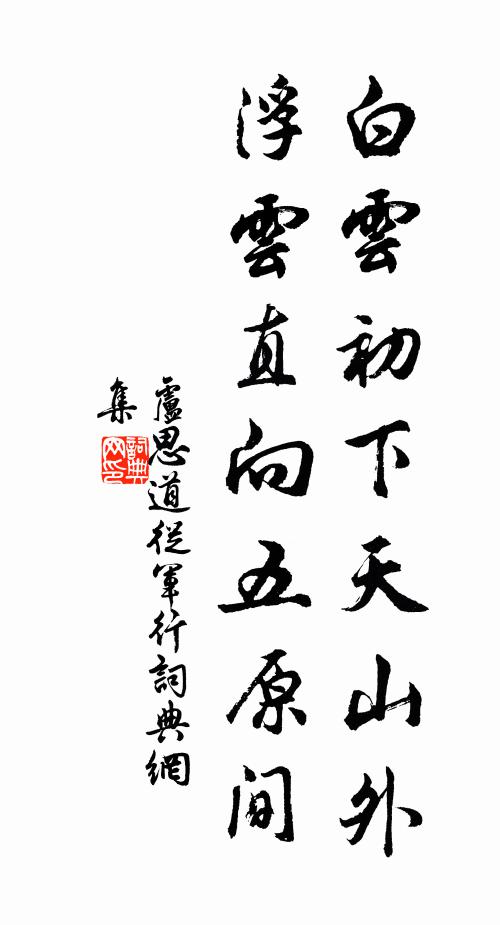 白雲初下天山外
浮雲直向五原間
盧思道從軍行詞典網
集
詞典
网印